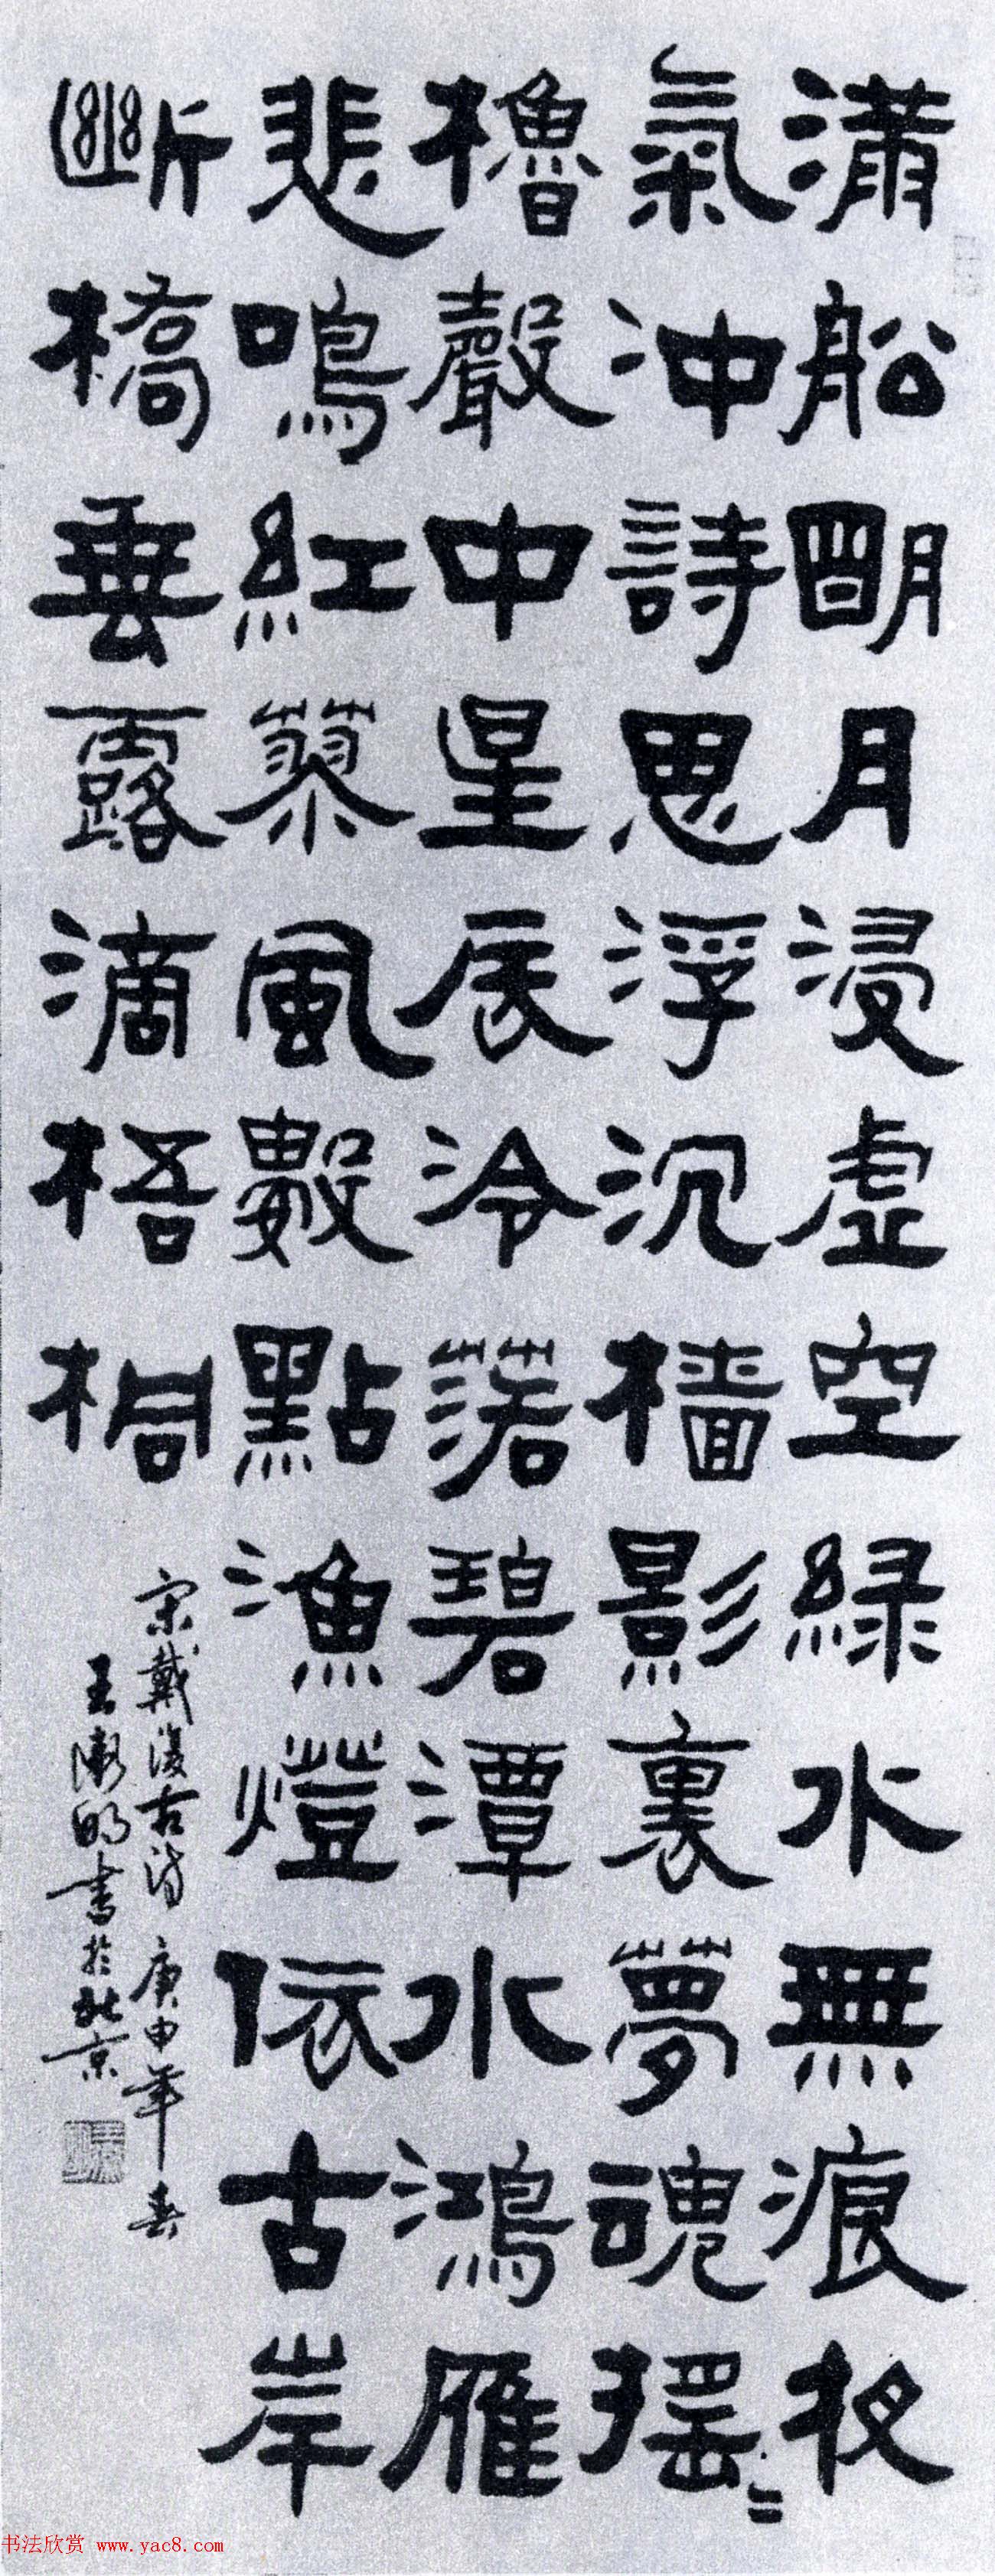 滿船明月浸虛空綠水無痕夜
氣沖詩思浮沉檣影裏夢魂搖〻
櫓聲中星辰冷落碧潭水鴻雁
悲鳴紅蓼風數點漁燈依古岸
斷橋垂露滴梧桐
宋戴復古詩 庚申年春
王漱明書於北京
书法欣赏 www.yac8.com